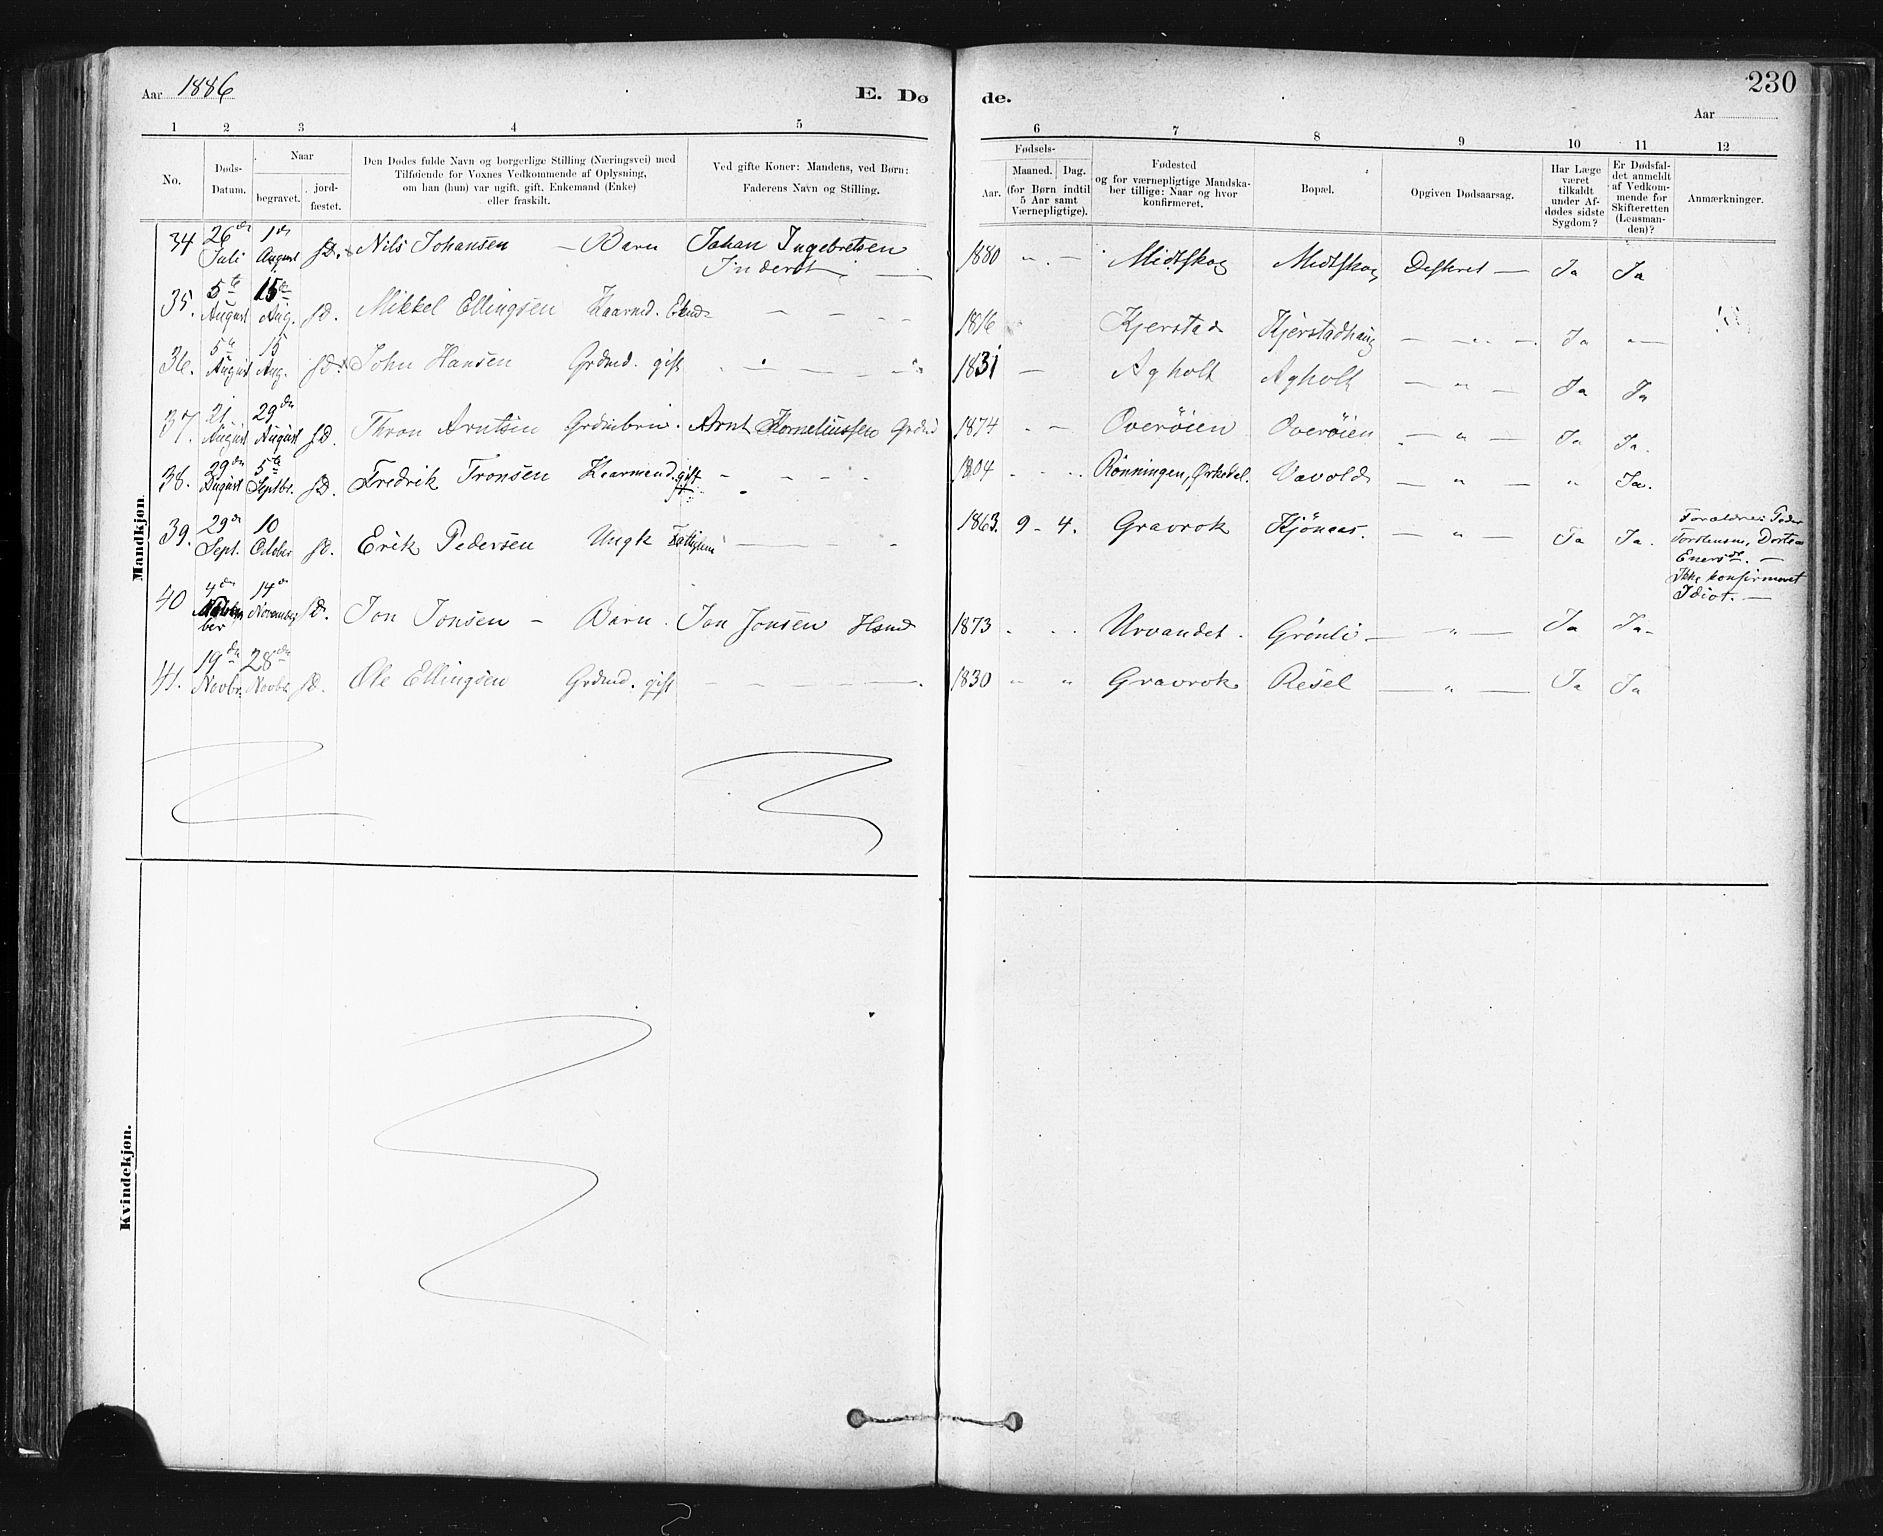 Aar 1886
E. Dø
de.
230
Aar
1 2 3 4 5 6 7 8 9 10 11 12
No.
Døds-
Datum.
Naar
begravet.
jord-
fæstet.
Den Dødes fulde Navn og borgerlige Stilling (Næringsvei) med
Tilføiende for Voxnes Vedkommende af Oplysning,
om han (hun) var ugift, gift, Enkemand (Enke)
eller fraskilt.
Ved gifte Koner: Mandens, ved Børn:
Faderens Navn og Stilling.
Fødsels-
Aar.
Maaned. Dag.
(for Børn indtil
5 Aar samt
Værnepligtige).
Fødested
og for værnepligtige Mandska-
ber tillige: Naar og hvor
konfirmeret.
Bopæl.
Opgiven Dødsaarsag.
Har Læge
været
tilkaldt
under Af-
dødes sidste
Sygdom?
Er Dødsfal-
det anmeldt
af Vedkom-
mende for
Skifteretten
(Lensman-
den)?
Anmærkninger.
Mandkjøn.
34 26de Juli 1de August s.D. Nils Johansen – Barn Johan Ingebretsen
Inderst 1880 " - – Midtskog Midtskog Ja Ja
35. 5te August 15de Aug. s.D. Mikkel Ellingsen Kaarmd. Ekmd. – – – – 1816 Kjerstad Kjerstadhaug – " – Ja "
36. 5te August 15 Aug. s.D. John Hansen Grdmd. gift 1831 – Agholt Agholt – " – Ja Ja
37. 21 August 29de August s.D. Thron Arntsen Arnt Korneliussen Grdmd 1874 - - Overøien Overøien – " – Ja Ja.
38. 29de August 5te Septbr. s.D. Fredrik Tronsen Kaarmand. gift – – – – 1804 Rönningen, Örkedal. Vavold – " – " Ja.
39. 29de Sept. 10 October s.D. Erik Pedersen Ungk – – – 1863. 9 - 4. Gravrok Kjönaas. – " – Ja Ja. Forældre: Peder
Torstensen, Dortea
Enersde. –
Ikke konfirmeret
Idiot. –
40 4de 14de November s.D. Jon Jonsen – Barn. Jon Jonsen Hsmd 1873 - - - Urvandet. Grönli – " – Ja Ja
41. 19de Novbr. 28de Novbr. s.D. Ole Ellingsen Grdmd. gift – – – – 1830 " " Gravrok Resel – " – Ja Ja
Kvindekjøn.